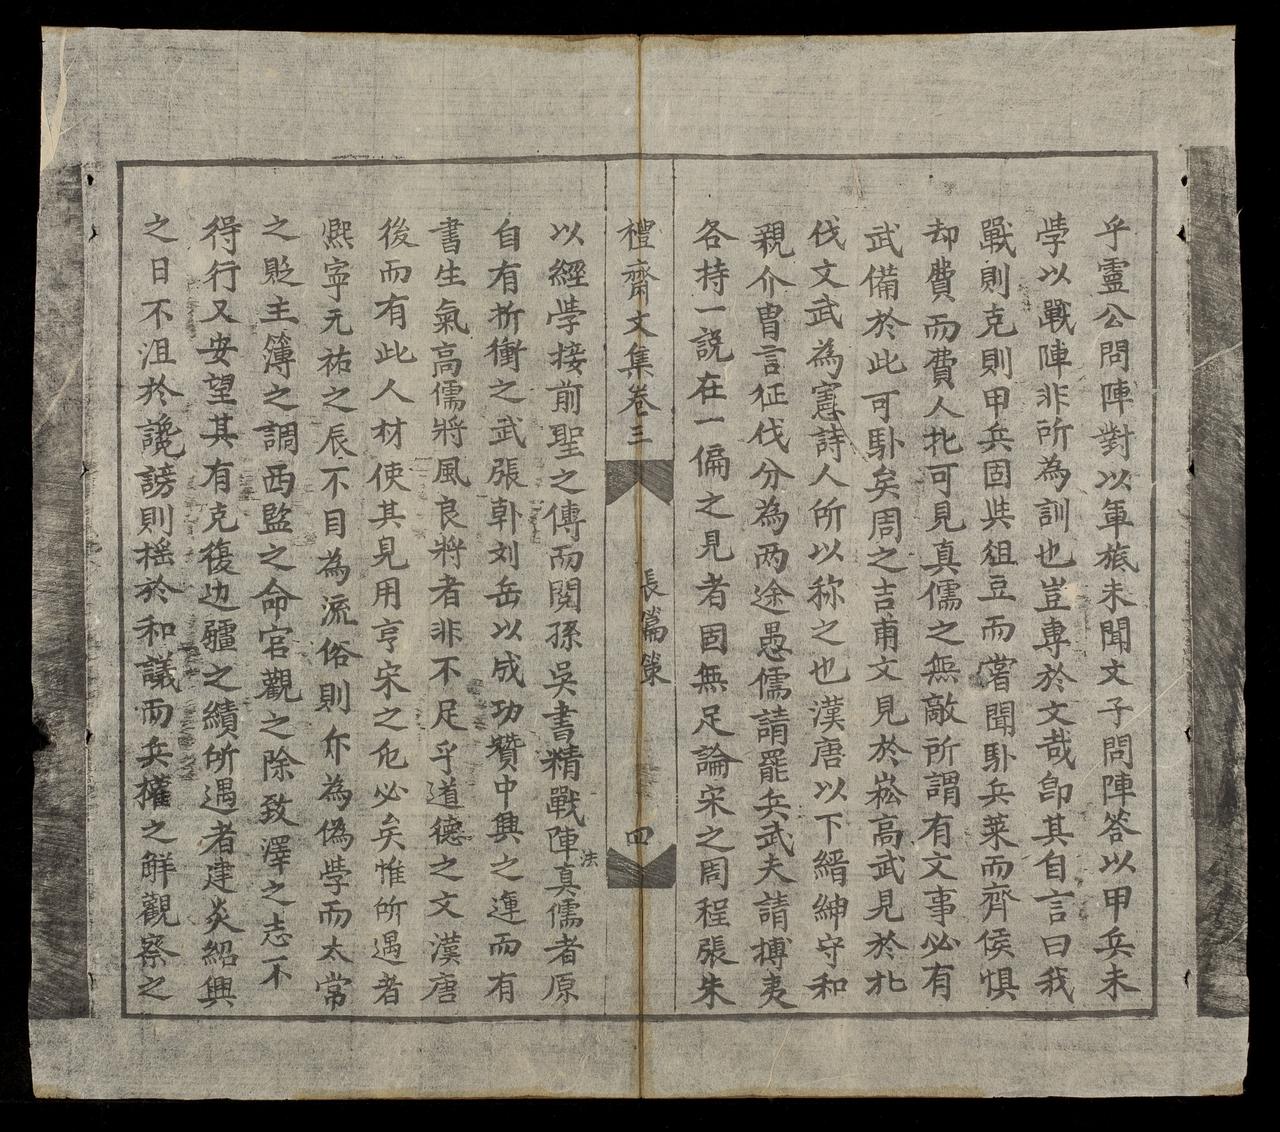 乎靈公問陣對以軍旅未聞文子問陣答以甲兵未
學以戰陣非所為訓也豈專於文哉卽其自言曰我
戰則克則甲兵固與俎豆而嘗聞卧兵萊而齊侯惧
却費而費人北可見真儒之無敵所謂有文事必有
武備於此可卧矣周之吉甫文見於崧高武見於北
伐文武為憲詩人所以称之也漢唐以下縉紳守和
親介冑言征伐分為两途愚儒請罷兵武夫請搏夷
各持一説在一偏之見者固無足論宋之周程張朱
禮齋文集卷三 長篇策 四
以經學接前聖之傳而閱孫吳書精戰陣法真儒者原
自有折衝之武張韩刘岳以成功贊中興之運而有
書生氣高儒將風良將者非不足乎道德之文漢唐
後而有此人材使其見用亨宋之危必矣惟所遇者
熙寧元祐之辰不目為流俗則尒為偽學而太常
之貶主簿之調西監之命官觀之除致澤之志不
得行又安望其有克復边疆之績所遇者建炎紹興
之日不沮於讒謗則摇於和議而兵權之觧觀察之